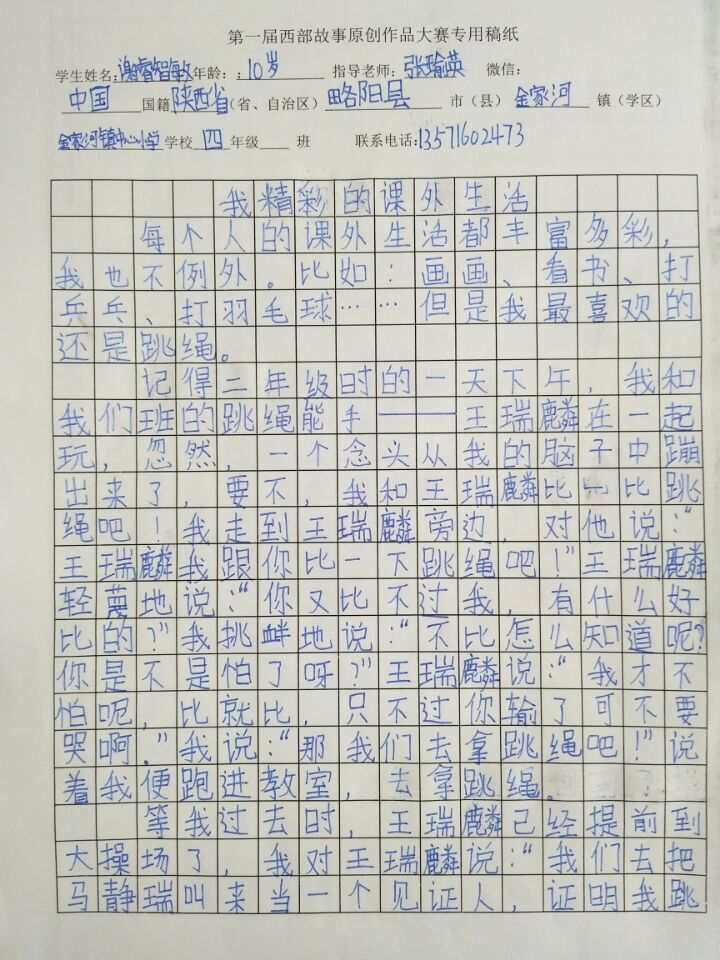 第一届西部故事原创作品大赛专用稿纸
学生姓名:谢睿智敏年龄::10岁 指导老师:张瑜英 微信:
中国国籍陕西省(省、自治区)略阳县市(县)金家河镇(学区)
金家河镇中心小学学校四年级 班 联系电话:13571602473
我精彩的课外生活
每个人的课外生活都丰富多彩,
我也不例外。比如:画画、看书、打
乒乓、打羽毛球……但是我最喜欢的
还是跳绳。
记得二年级时的一天下午,我和
我们班的跳绳能手——王瑞麟在一起
玩,忽然,一个念头从我的脑子中蹦
出来了,要不,我和王瑞麟比一比跳
绳吧!我走到王瑞麟旁边,对他说:“
王瑞麟我跟你比一下跳绳吧!”王瑞麟
轻蔑地说:“你又比不过我,有什么好
比的?”我挑衅地说:“不比怎么知道呢?
你是不是怕了呀?”王瑞麟说:“我才不
怕呢,比就比,只不过你输了可不要
哭啊。”我说:“那我们去拿跳绳吧!”说
着我便跑进教室,去拿跳绳。
等我过去时,王瑞麟已经提前到
大操场了,我对王瑞麟说:“我们去把
马静瑞叫来当一个见证人,证明我跳